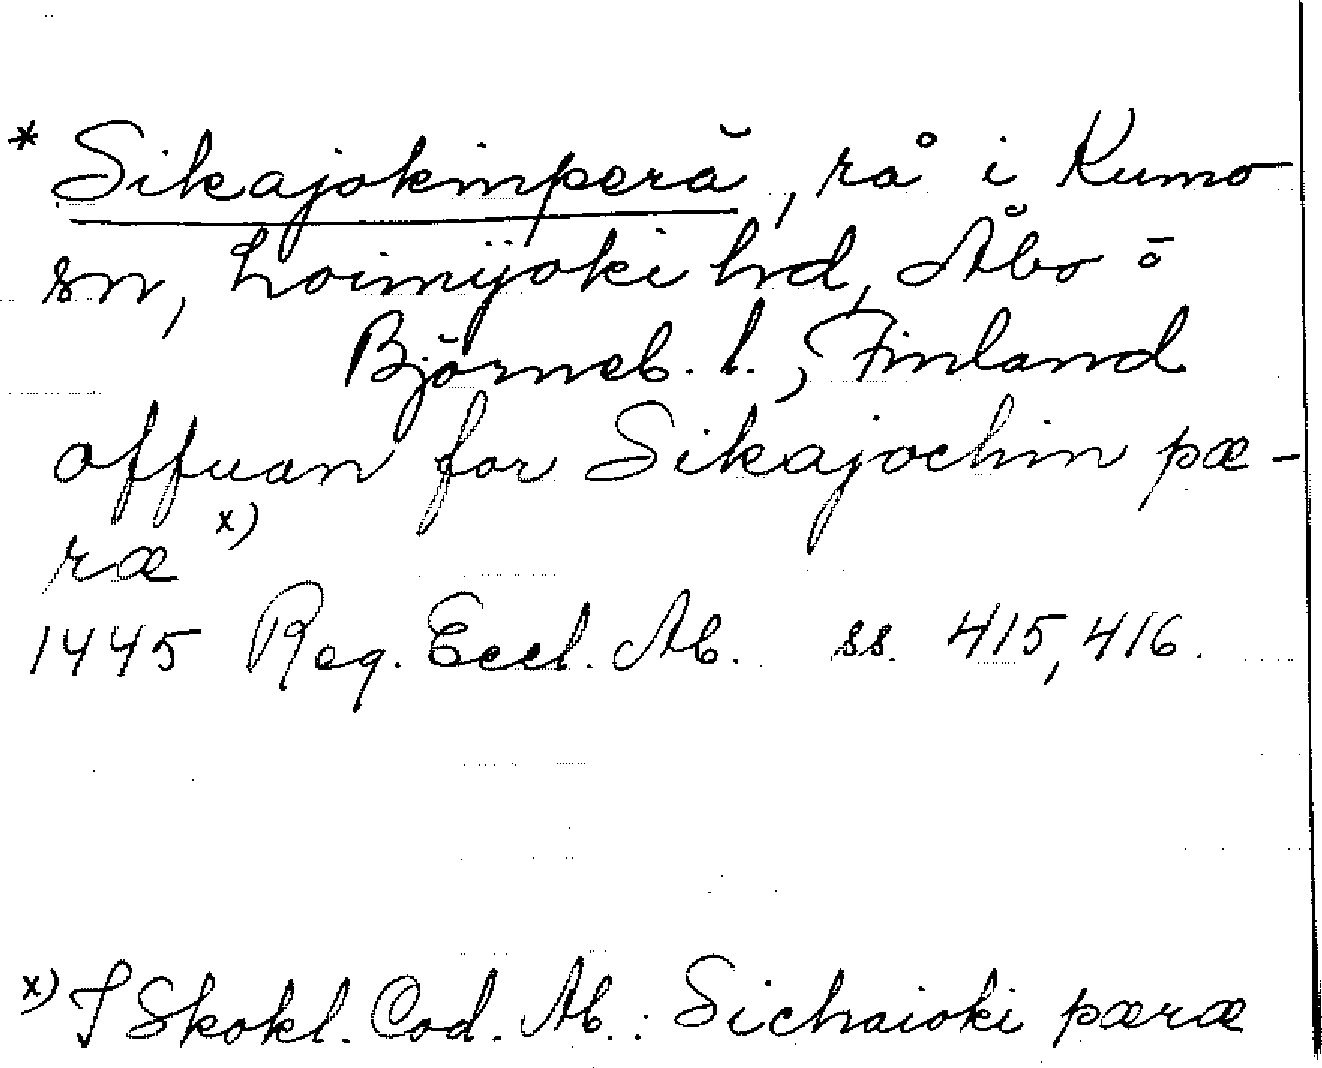 * Sikajokinperä, rå i Kumo
sn, Loimijoki hd, Åbo o
Björneb. l., Finland
offuan for Sikajochin pæ-
ræ x)
1445 Reg. Eccl. Ab. ss. 415, 416.
x) I Skokl. Cod. Ab.: Sichaioki pæræ